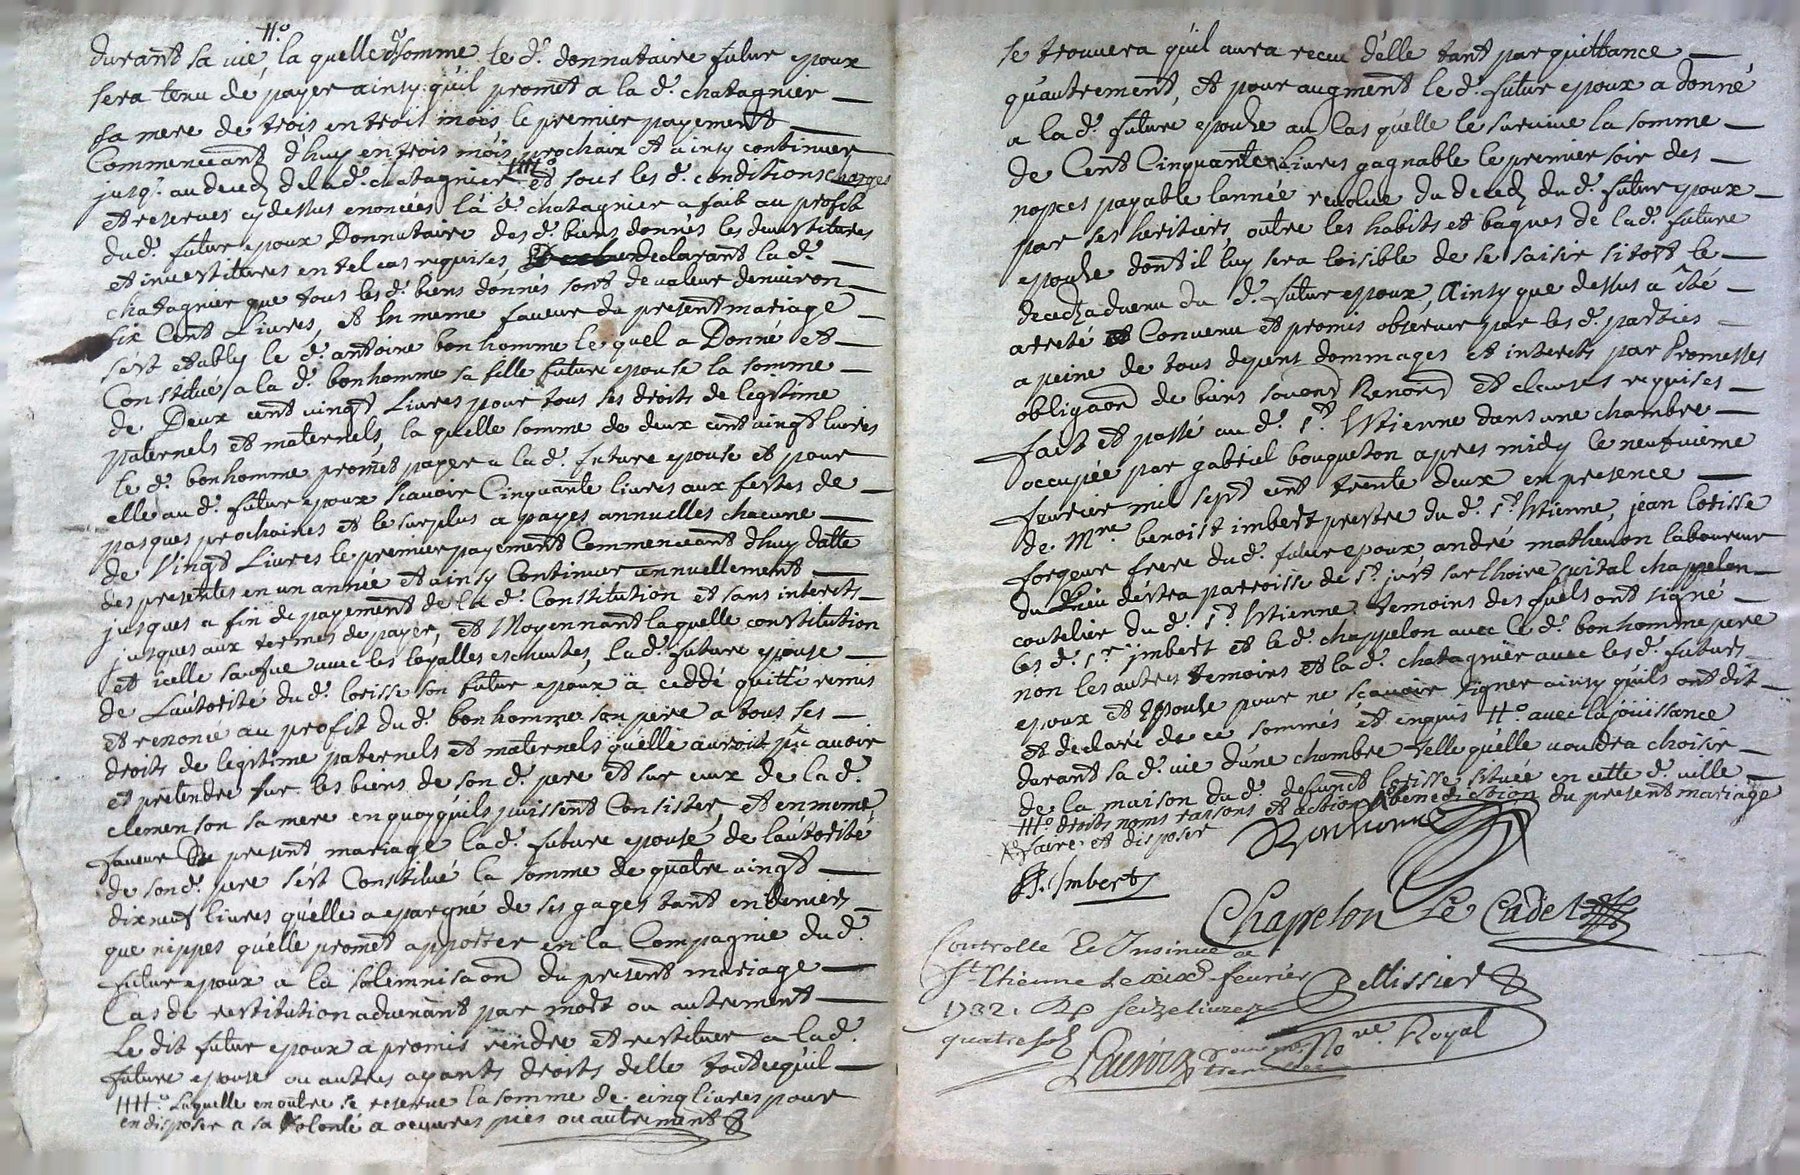 H.°
durant sa vie, la quelle d. somme le d. donnataire futur epoux
sera tenu de payer ainsy qu'il promet a la d.e chatagnier
sa mere de trois en trois mois le premier payement
Commenceant d'huy en trois mois prochain et ainsy continuer
jusq. au deced de la d.e chatagnier HHH.° et sous les d. conditions charges
et reserves cy dessus enoncées la d.e chatagnier a fait au profit
du d. futur epoux Donnataire des d. biens donnés les devestitures
et investitures en tel cas requises declarant la d.e
chatagnier que tous les d. biens donnés sont de valeur denviron
six Cent Livres, et En meme faveur du present mariage
s'est etably le d. antoine bonhomme le quel a Donné et
Constitué a la d.e bonhomme sa fille future epouse la somme
de Deux cent vingt Livres pour tous ses droits de legitime
paternels et maternels, la quelle somme de deux cent vingt livres
le d. bonhomme promet payer a la d.e future epouse et pour
elle au d. futur epoux scavoir Cinquante livres aux festes de
pasques prochaines et le surplus a payes annuelles chacune
de Vingt Livres le premier payement Commenceant d'huy datte
des presentes en un année et ainsy Continuer annuellement
jusques a fin de payement de la d.e Constitution et sans interets
jusques aux termes de payer, et Moyennant laquelle constitution
et icelle saufue avec les loyalles escheutes, la d.e future epouse
de Lautorité du d. lorisse son futur epoux a ceddé quitté remis
et renoncé au profit du d. bonhomme son pere a tous ses
droits de legitime paternels et maternels qu'elle auroit pu avoir
et pretendre sur les biens de son d. pere et sur ceux de la d.e
clemenson sa mere en quoy qu'ils puissent Consister, et en meme
faveur De present mariage la d.e future epouse de lautorité
de son d. pere s'est Constitué la somme de quatre vingt
dixneuf livres qu'elle a epargné de ses gages tant en deniers
que nippes qu'elle promet apporter en la Compagnie du d.
futur epoux a la solemnisaon du present mariage
Cas de restitution advenant par mort ou autrement
Le dit futur epoux a promis rendre et restituer a la d.e
future epouse ou autres ayants droits d'elle tout ce qu'il
HHH.° Laquelle en outre se reserve la somme de cinq livres pour
en disposer a sa volonté a oeuvres pies ou autrement
se trouvera qu'il aura receu d'elle tant par quittance
qu'autrement, et pour augment le d. futur epoux a donné
a la d.e future epouse au Cas qu'elle le survive la somme
de Cent Cinquante Livres gagnable le premier soir des
nopces payable lannée revolue du deced du d. futur epoux
par ses heritiers, outre les habits et bagues de la d.e future
epouse dont il luy sera loisible de se saisir sitost le
deced advenu du d. futur epoux, Ainsy que dessus a été
arreté et Convenu et promis observer par les d. parties
a peine de tous depens dommages et interets par Promesses
obligaon de biens soumon Renoon et clauses requises
fait et passé au d. S.t Estienne dans une chambre
occupée par gabriel bouqueton apres midy le neufvieme
fevrier mil sept cent trente deux en presence
de M.re benoist imbert prestre du d. S.t Estienne, jean lorisse
forgeur frere du d. futur epoux, andré mathevon laboureur
du lieu destra parroisse de S.t just sur lhoire, vital chappelon
coutelier du d. S.t Estienne temoins des quels ont signé
les d. S.r imbert et le d. chappelon avec le d. bonhomme pere
non les autres temoins et la d.e chatagnier avec les d. futurs
epoux et Epouse pour ne scavoir signer ainsy qu'ils ont dit
et declaré de ce sommés et enquis H.° avec la jouissance
durant sa d. vie d'une chambre telle qu'elle voudra choisir
de la maison du d. defunct lorisse, située en cette d. ville
HH.° droits noms raisons et actions benediction du present mariage
faire et disposer
Bonhomme
Imbert
Chappelon Le Cadet
Controllé Et Insinué a
St. Etienne Le fevrier
1732. R. seize livres
quatre sols
Pellissier
No.re Royal